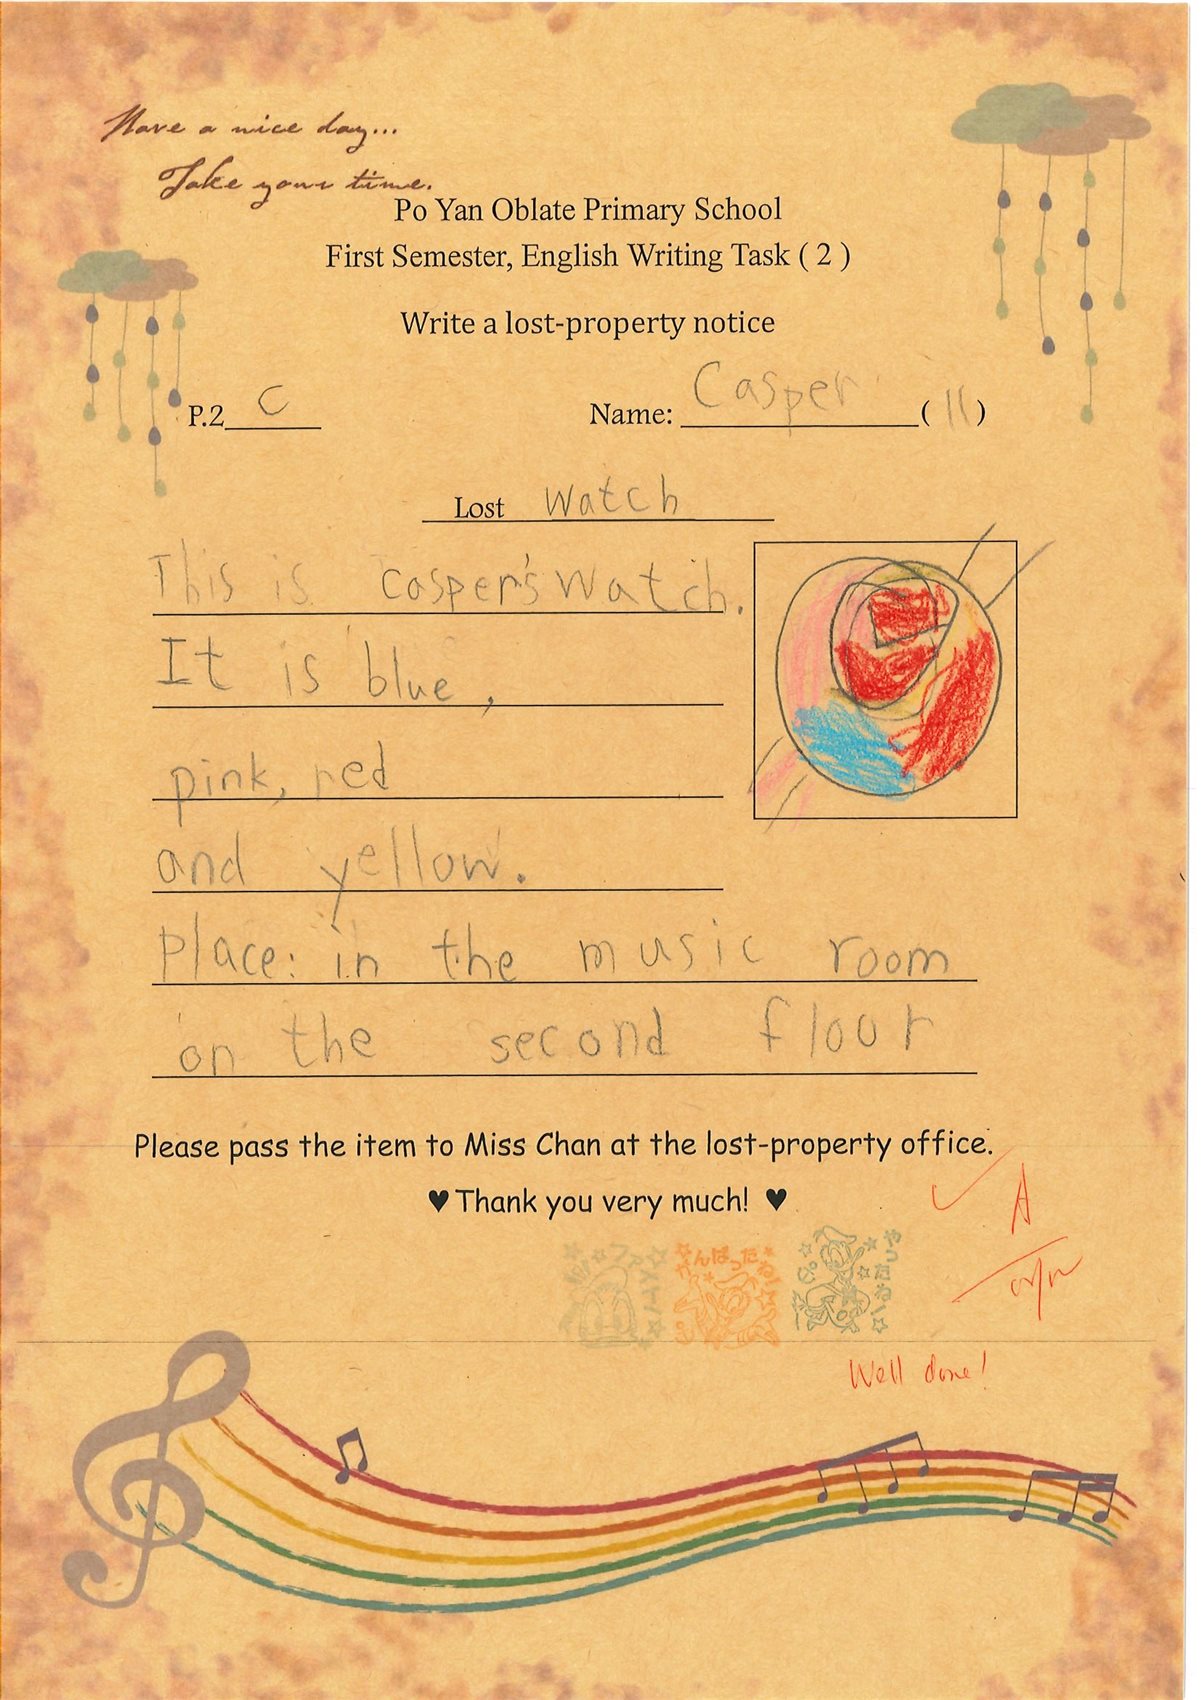 Have a nice day...
Take your time.
Po Yan Oblate Primary School
First Semester, English Writing Task ( 2 )
Write a lost-property notice
P.2 C Name: Casper ( 11 )
Lost Watch
This is casper's watch.
It is blue,
pink, red
and yellow.
Place: in the music room
on the second flour
Please pass the item to Miss Chan at the lost-property office.
♥ Thank you very much! ♥
A
がんばったね!
やったね!
Well done!